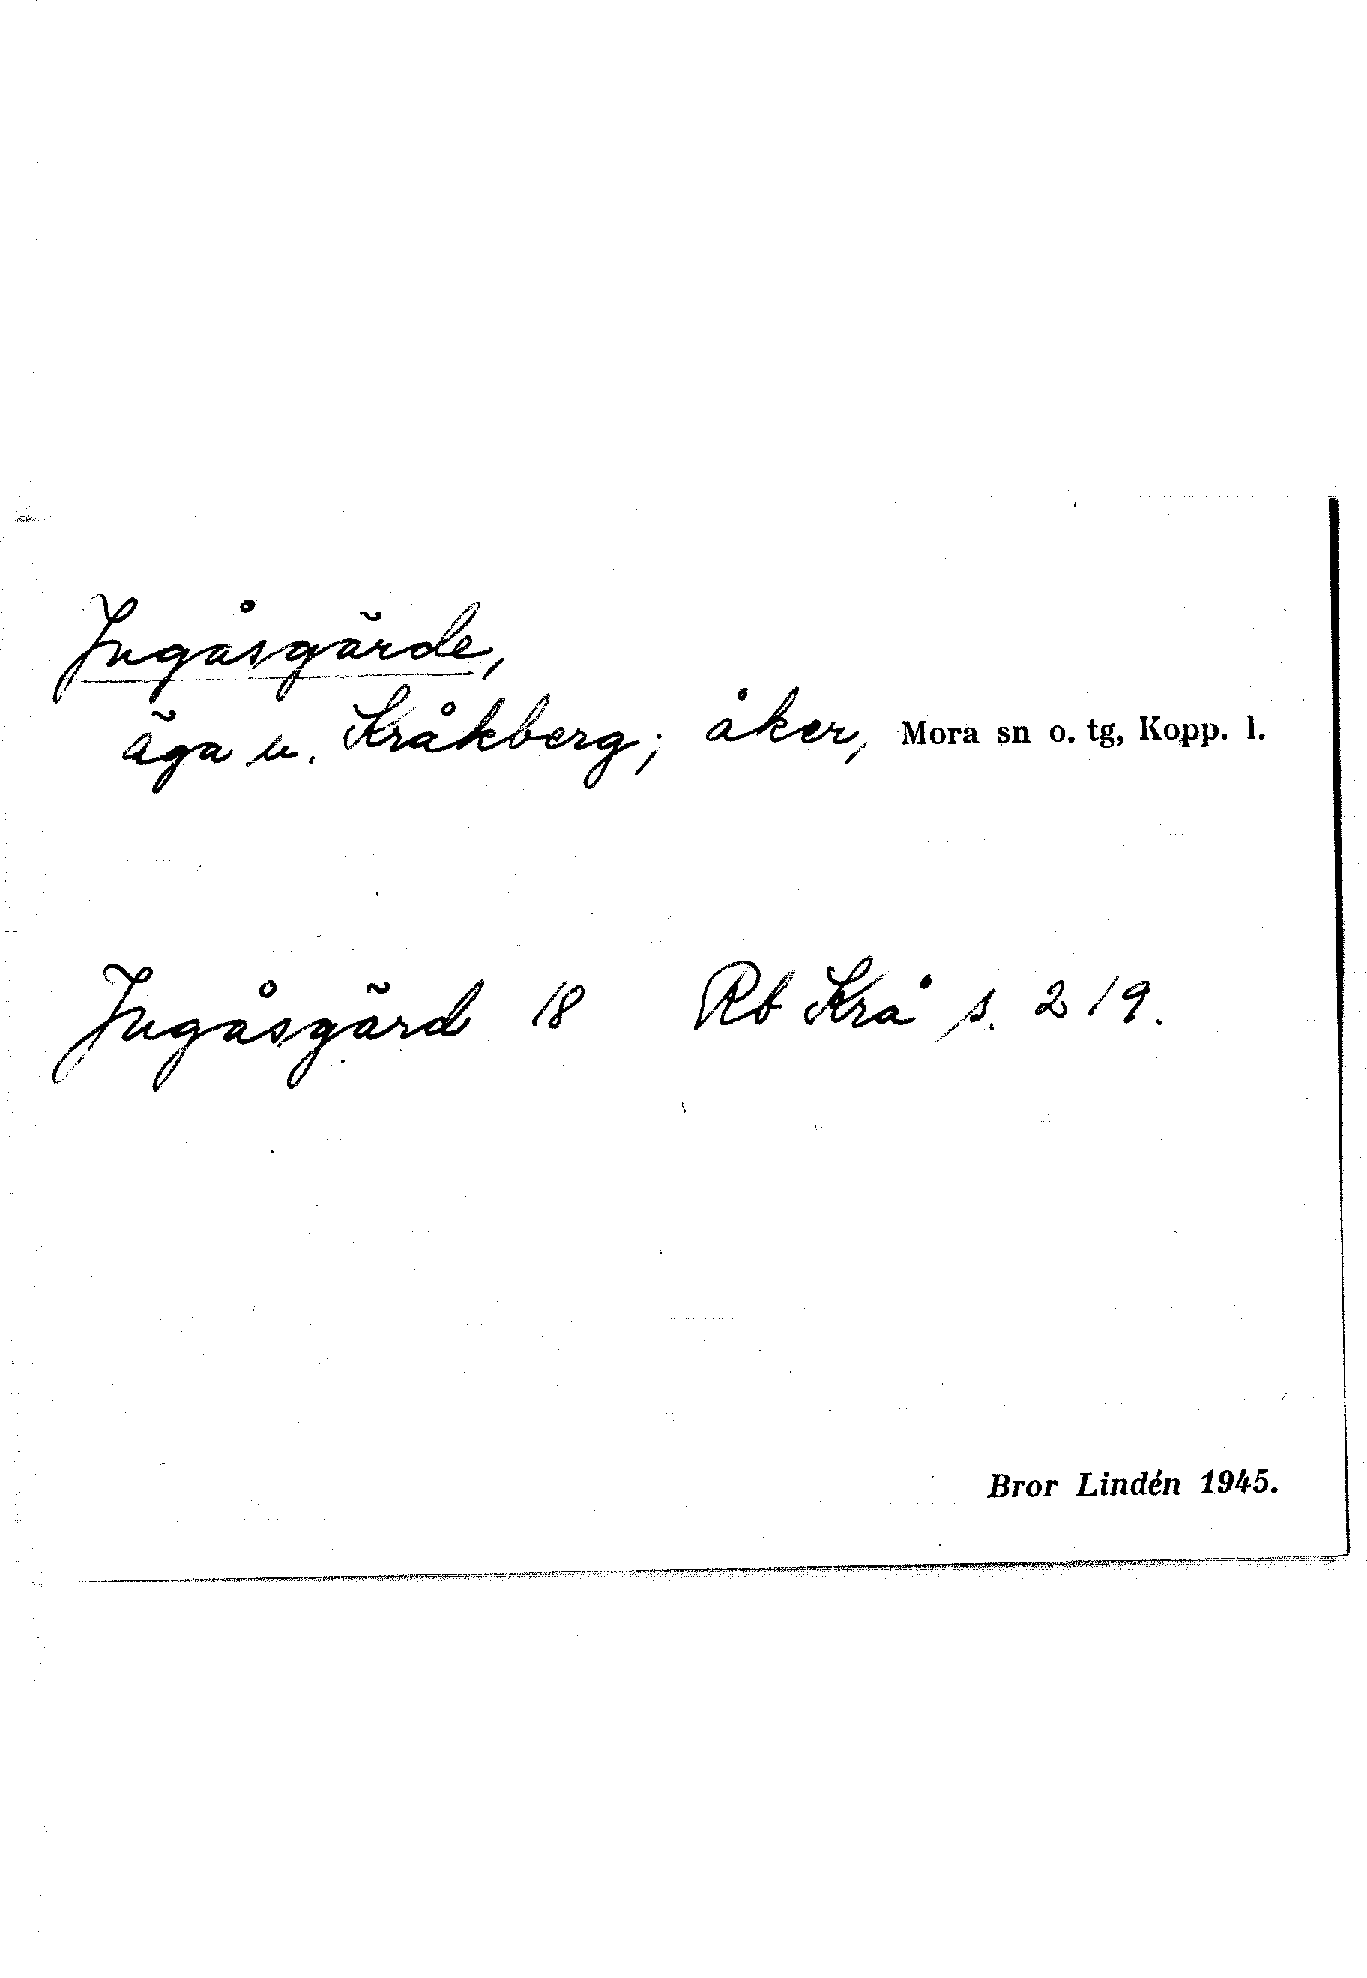 Ingåsgärde,
äga u. Kråkberg; åker, Mora sn o. tg, Kopp. l.
Ingåsgärd 18 Rb Krå s. 219.
Bror Lindén 1945.